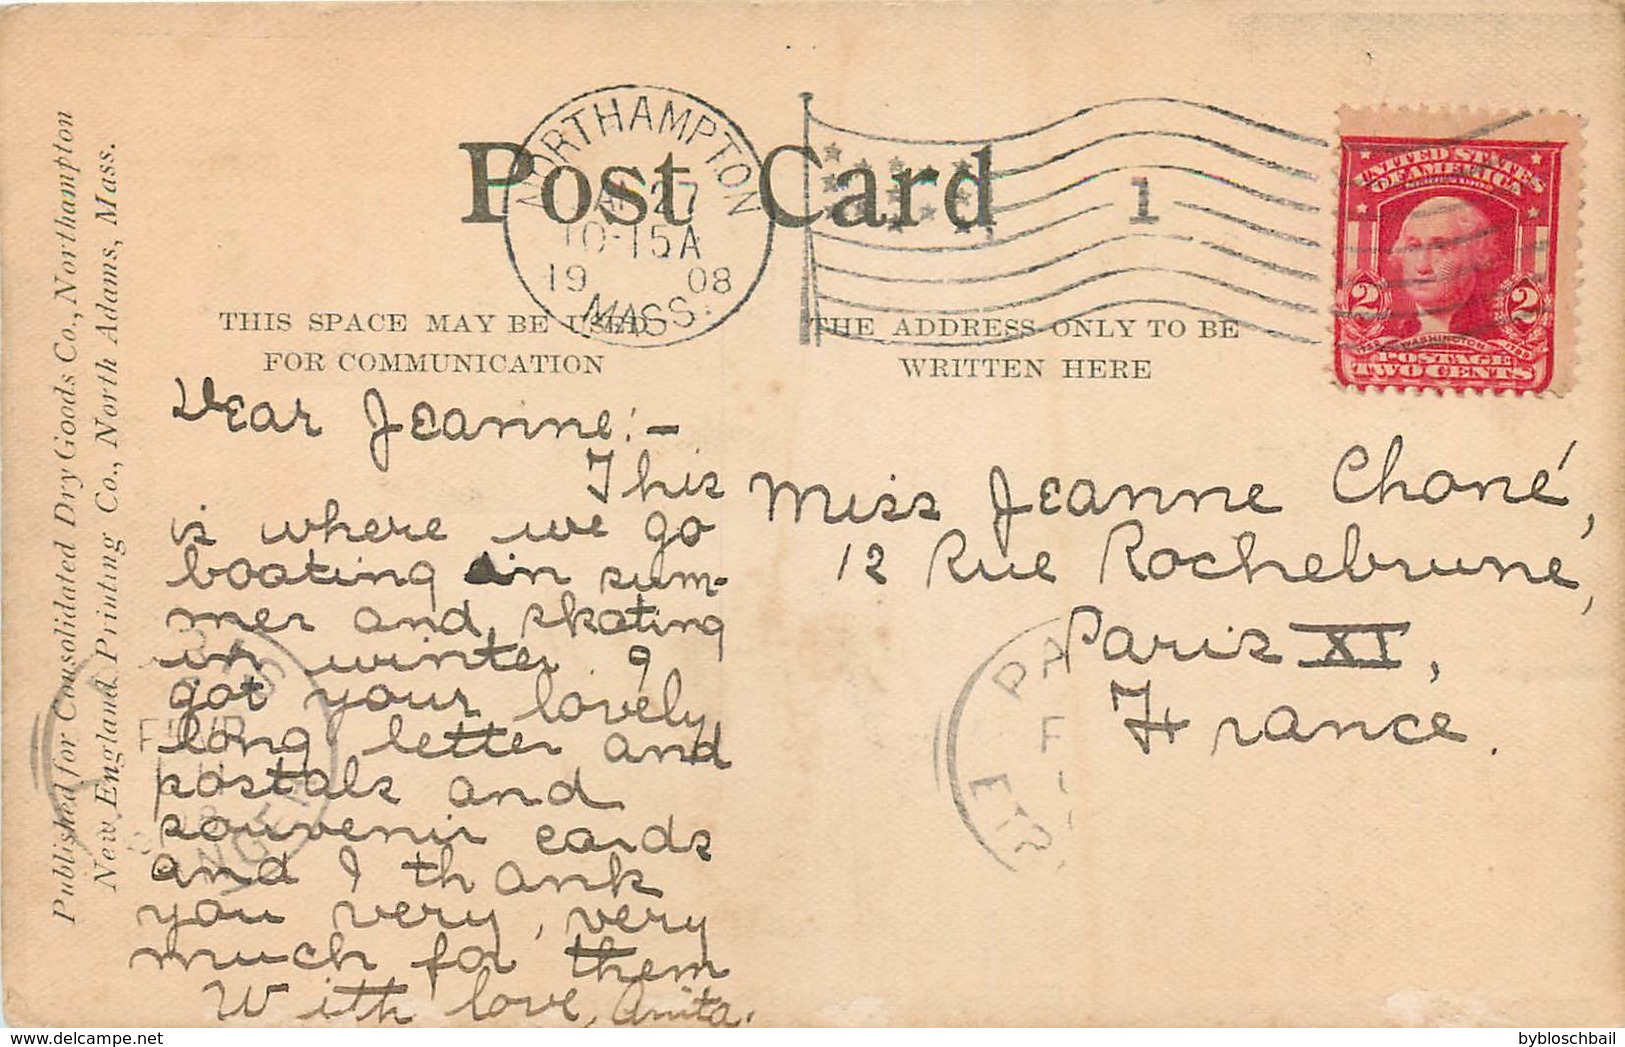 Published for Consolidated Dry Goods Co., Northampton
New England Printing Co., North Adams, Mass.
Post Card
NORTHAMPTON
JAN 27
10-15A
1908
MASS.
1
UNITED STATES
OF AMERICA
SERIES 1902
2 2
WASHINGTON
POSTAGE
TWO CENTS
THIS SPACE MAY BE USED
FOR COMMUNICATION
THE ADDRESS ONLY TO BE
WRITTEN HERE
Dear Jeanne:-
This
is where we go
boating in sum-
mer and skating
in winter. I
got your lovely,
long letter and
postals and
souvenir cards
and I thank
you very, very
much for them
With love, Anita.
Miss Jeanne Choné,
12 Rue Rochebrune,
Paris XI,
France.
PA
ETR
bybloschbail